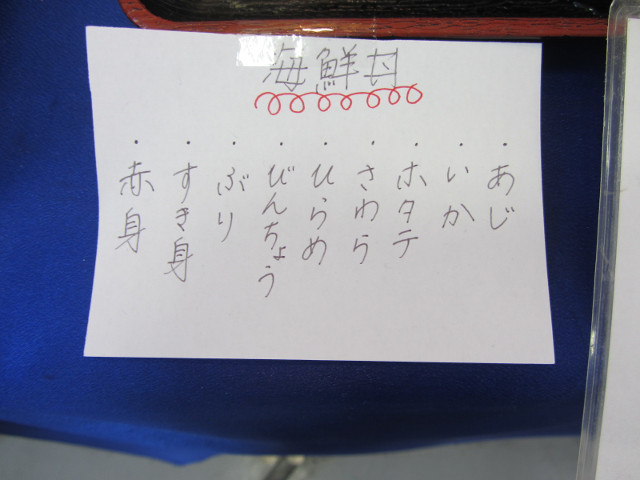 海鮮丼
・あじ
・いか
・ホタテ
・さわら
・ひらめ
・びんちょう
・ぶり
・すき身
・赤身